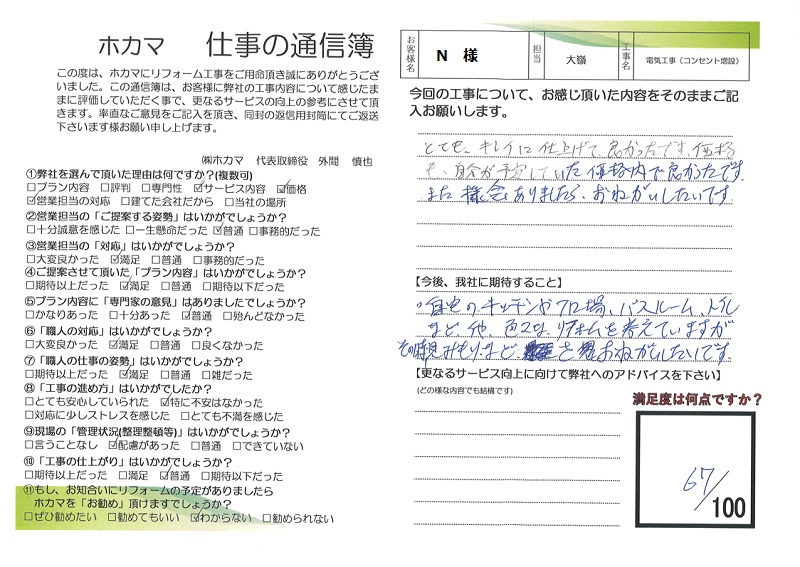 ホカマ 仕事の通信簿
この度は、ホカマにリフォーム工事をご用命頂き誠にありがとうござ
いました。この通信簿は、お客様に弊社の工事内容について感じたま
まに評価していただく事で、更なるサービスの向上の参考にさせて頂
きます。率直なご意見をご記入を頂き、同封の返信用封筒にてご返送
下さいます様お願い申し上げます。
㈱ホカマ 代表取締役 外間 慎也
①弊社を選んで頂いた理由は何ですか?(複数可)
□プラン内容 □評判 □専門性 ☑サービス内容 ☑価格
☑営業担当の対応 □建てた会社だから □当社の場所
②営業担当の「ご提案する姿勢」はいかがでしょうか?
□十分誠意を感じた □一生懸命だった ☑普通 □事務的だった
③営業担当の「対応」はいかがでしょうか?
□大変良かった ☑満足 □普通 □事務的だった
④ご提案させて頂いた「プラン内容」はいかがでしょうか?
□期待以上だった ☑満足 □普通 □期待以下だった
⑤プラン内容に「専門家の意見」はありましたでしょうか?
□かなりあった □十分あった ☑普通 □殆んどなかった
⑥「職人の対応」はいかがでしょうか?
□大変良かった ☑満足 □普通 □良くなかった
⑦「職人の仕事の姿勢」はいかがでしょうか?
□期待以上だった ☑満足 □普通 □雑だった
⑧「工事の進め方」はいかがでしたか?
□とても安心していられた ☑特に不安はなかった
□対応に少しストレスを感じた □とても不満を感じた
⑨現場の「管理状況(整理整頓等)」はいかがでしょうか?
□言うことなし ☑配慮があった □普通 □できていない
⑩「工事の仕上がり」はいかがでしょうか?
□期待以上だった □満足 ☑普通 □期待以下だった
⑪もし、お知合いにリフォームの予定がありましたら
ホカマを「お勧め」頂けますでしょうか?
□ぜひ勧めたい □勧めてもいい ☑わからない □勧められない
お客様名 N 様 担当 大嶺 工事名 電気工事(コンセント増設)
今回の工事について、お感じ頂いた内容をそのままご記
入お願いします。
とても、キレイに仕上げて良かったです。価格
も、自分が予定していた価格内で良かったです。
また機会ありましたら、おねがいしたいです
【今後、我社に期待すること】
。自宅のキッチンやフロ場、バスルーム、トイレ
など、他、色々な、リフォームを考えていますが
その時見みもりなど、を おねがいしたいです。
【更なるサービス向上に向けて弊社へのアドバイスを下さい】
(どの様な内容でも結構です)
満足度は何点ですか?
67/100